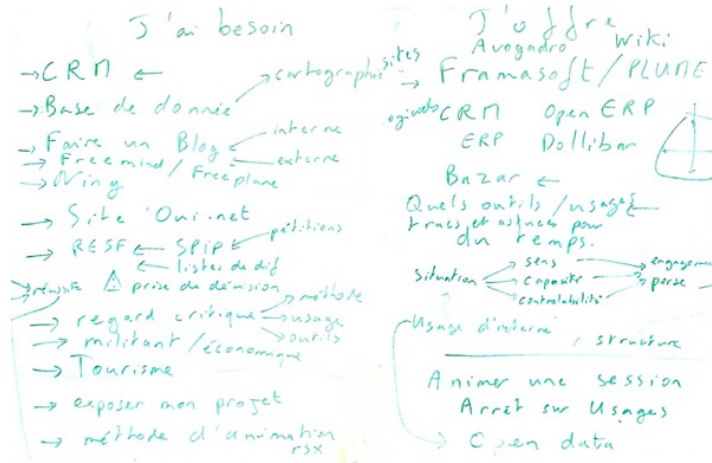 J'ai besoin
→ CRM ←
→ Base de donnée → cartographie
→ Faire un Blog ← interne
← externe
→ Freemind / Freeplane
→ Ning
→ Site Oui.net
→ RESF ← SPIP ← pétitions
← listes de dif
⚠ prise de décision
→ regard critique → méthode
→ usage
→ outils
→ militant / économique
→ Tourisme
→ exposer mon projet
→ méthode d'animation
rsx
J'offre
Avogadro Wiki
sites → Framasoft / PLUME
CRM Open ERP
ERP Dollibar
Bazar ←
Quels outils / usages ←
trucs et astuces pour
du temps.
Situation → sens
→ capacité
→ contrôlabilité
Usage d'interne
/ structure
Animer une session
Arrêt sur Usages
→ Open data